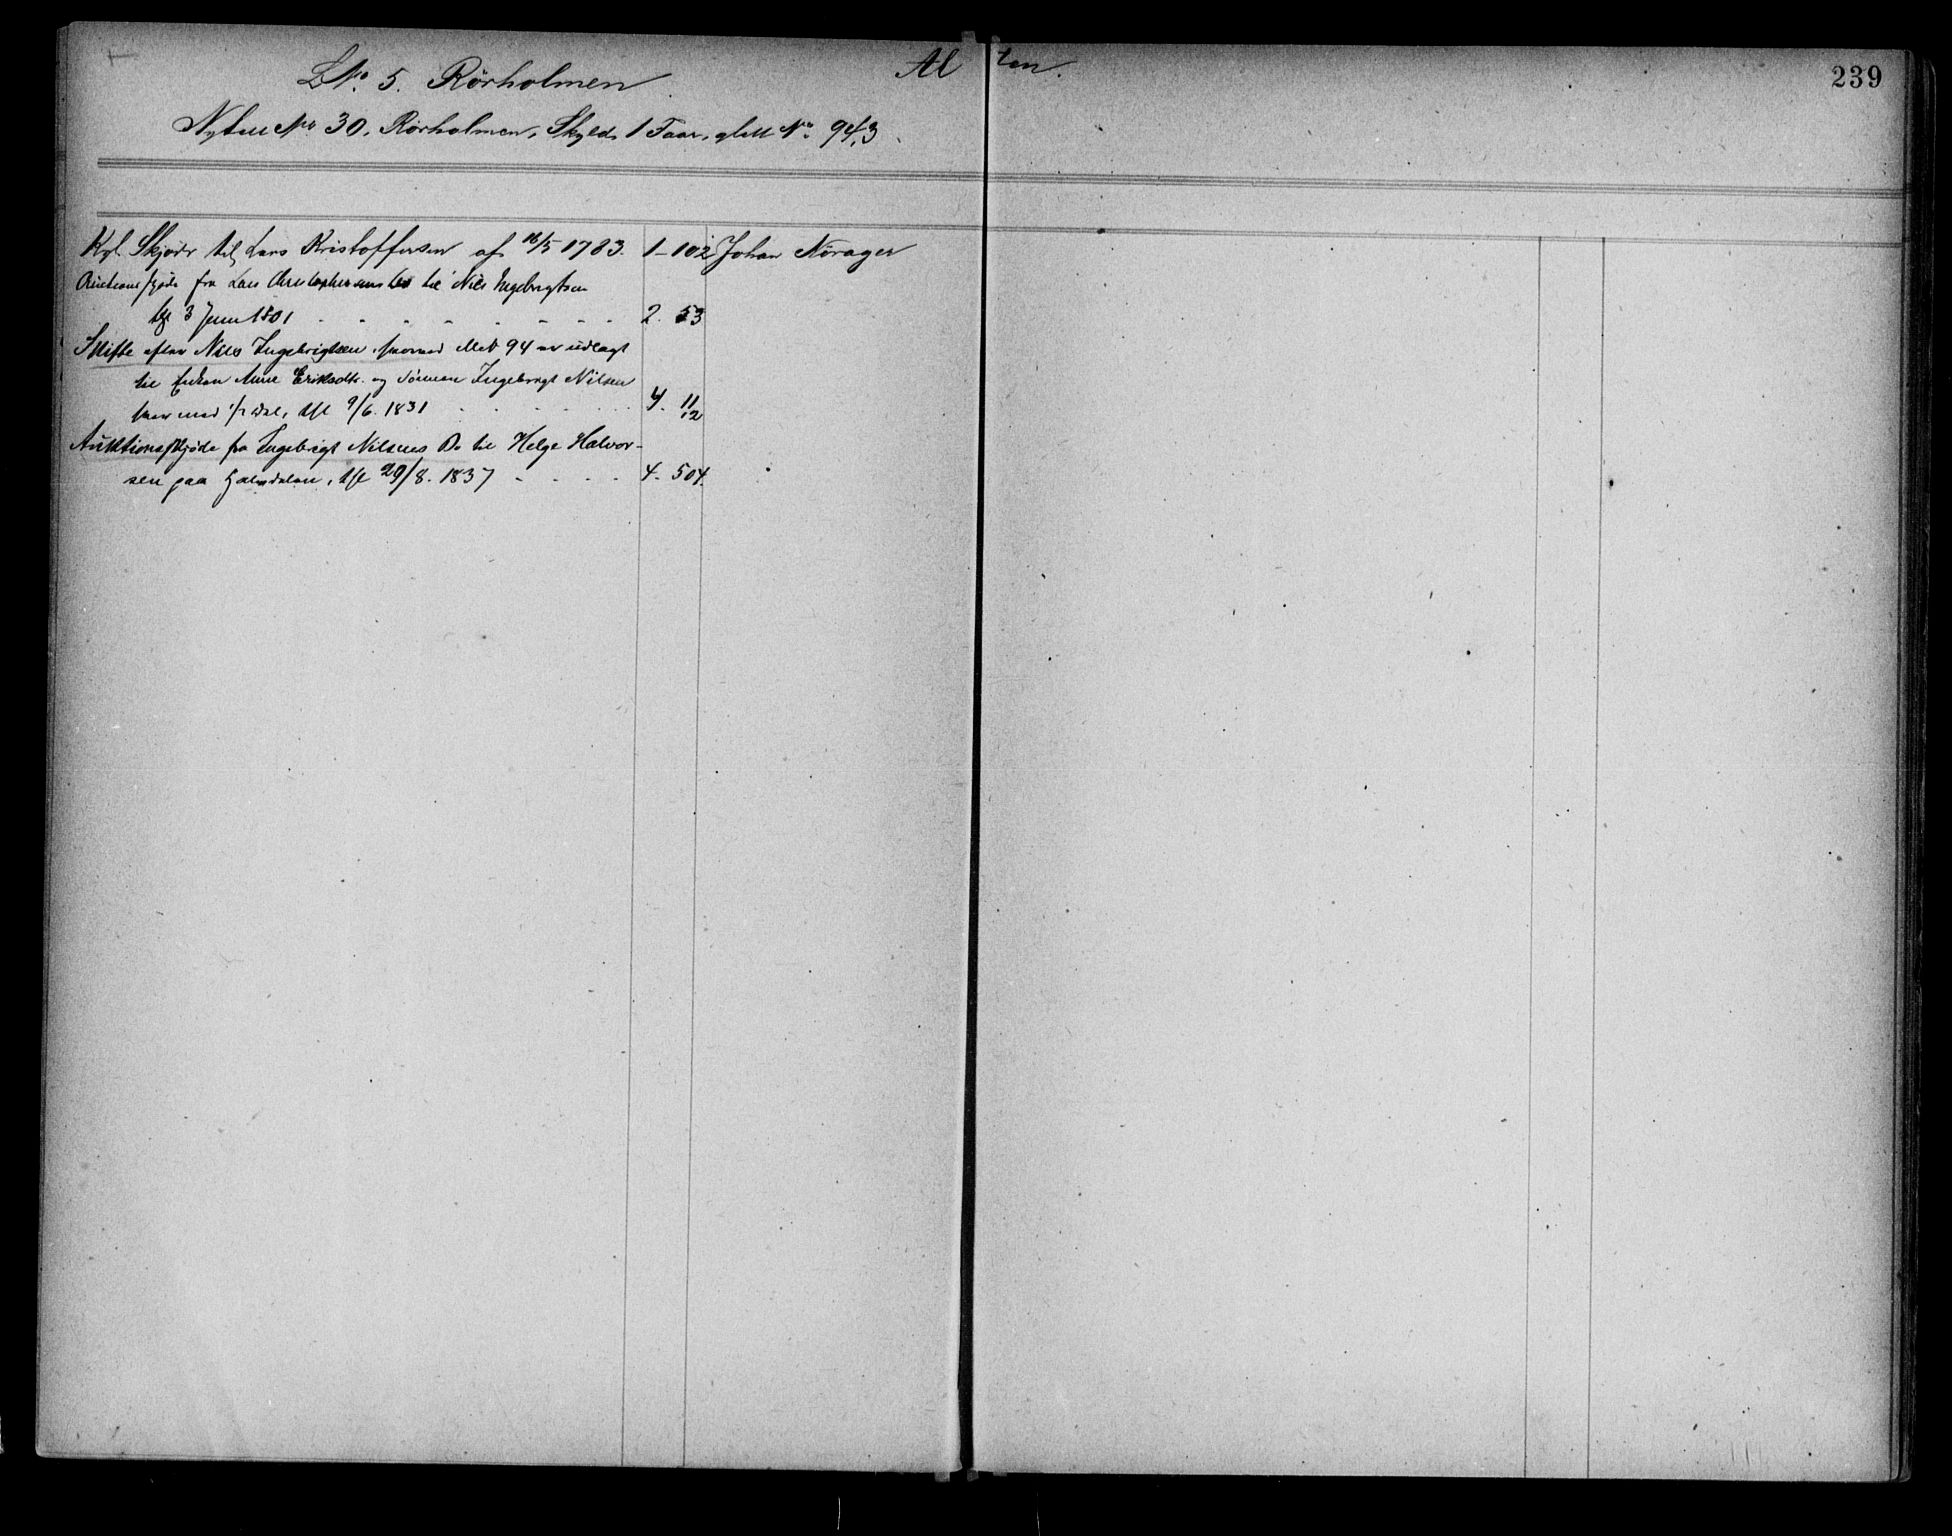 LNo. 5. Rørholmen
Al ten.
239
Nyt No 30, Rørholmen, Skyld 1 Faar, glMt No. 94,3
Kgl. Skjøde til Lars Kristoffersen af 16/5 1783. 1-102 Johan Nørager
Auctionsskjøde fra Lars Christophersens bo til Niels Ingebregtsen
tgl 3 Juni 1801 2. 53
Skifte efter Niels Ingebrigtsen, hvorved MNo 94 er udlagt
til Enken Anne Eriksdtr. og Sønnen Ingebregt Nilsen
hver med 1/2 del, tgl 9/6. 1831 4. 11/12
Auktionsskjøde fra Ingebrigt Nilsens Bo til Helge Halvor-
sen paa, tgl 29/8. 1837 4. 504.